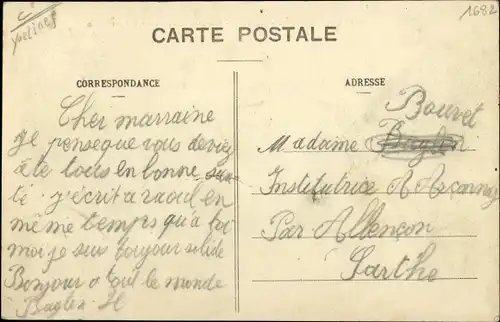 Yvelines
1682
CARTE POSTALE
CORRESPONDANCE
Cher marraine
je pense que vous deviez
ete tous en bonne san
té j'écrit a raoul en
même temps qu'a toi
moi je suis toujour solide
Bonjour a tout le monde
Baglin H
ADRESSE
Bouvet
Madame Baglin
Institutrice A Arçonnay
Par Allençon
Sarthe